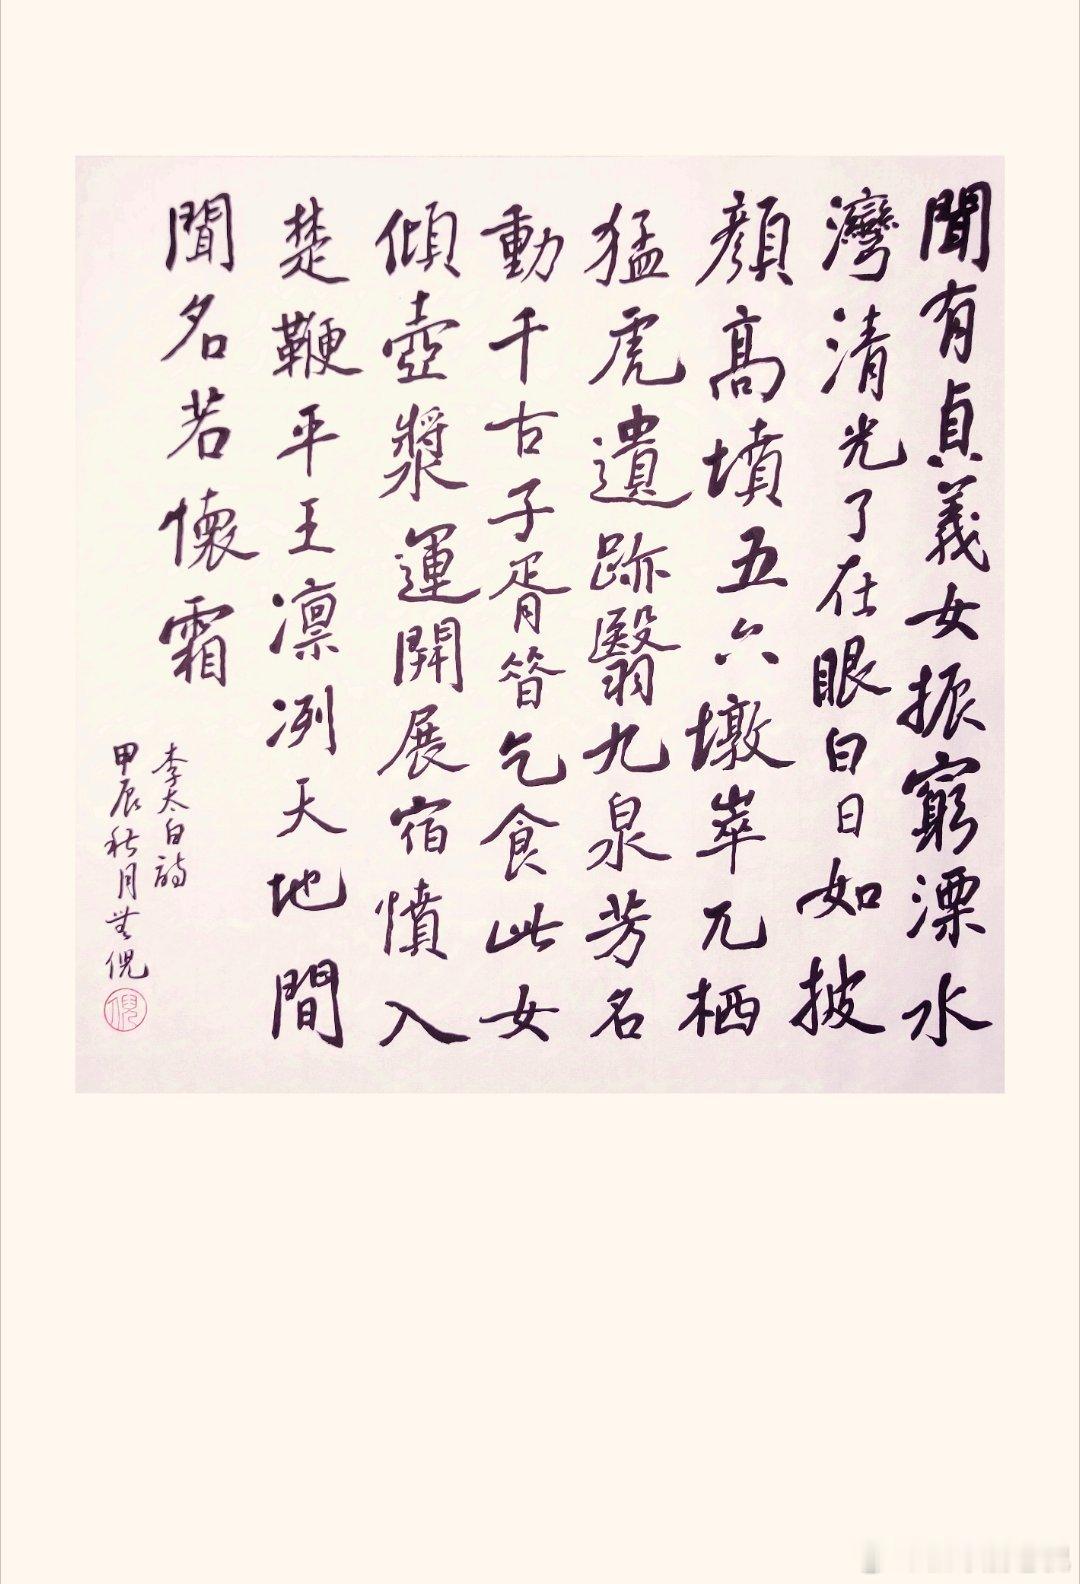 聞有貞義女振窮漂水
灣清光了在眼白日如披
顏高墳五六墩崒兀栖
猛虎遺跡翳九泉芳名
動千古子胥昔乞食此女
傾壺漿運開展宿憤入
楚鞭平王凛冽天地間
聞名若懷霜
李太白詩
甲辰秋月無倪
倪